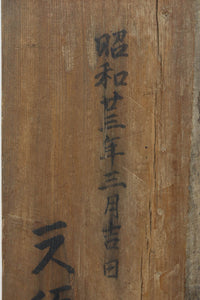 昭和廿三年三月吉日
天